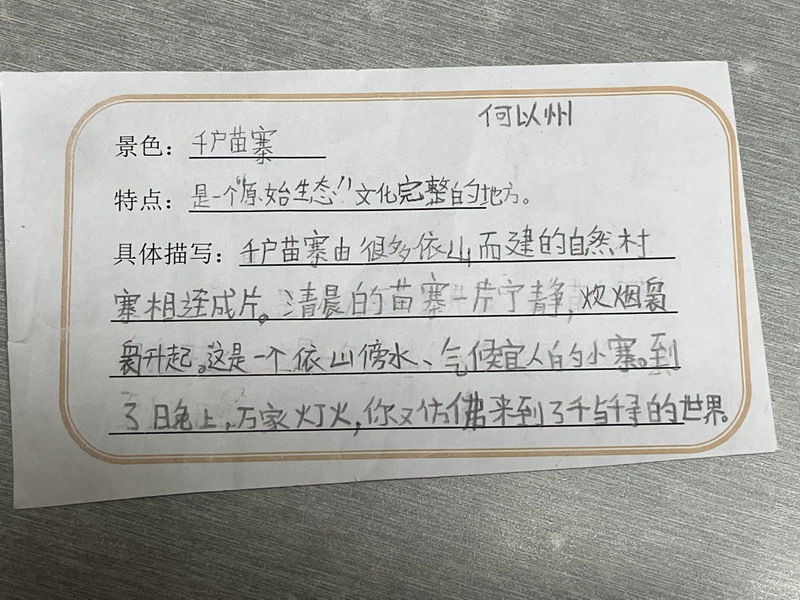 何以州
景色：千户苗寨
特点：是一个"原始生态！"文化完整的地方。
具体描写：千户苗寨由很多依山而建的自然村
寨相连成片。清晨的苗寨一片宁静，炊烟袅
袅升起。这是一个依山傍水、气候宜人的小寨。到
了晚上，万家灯火，你又仿佛来到了千与千寻的世界。